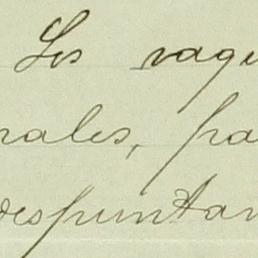 Los vaqu
rales, pa
despuntan